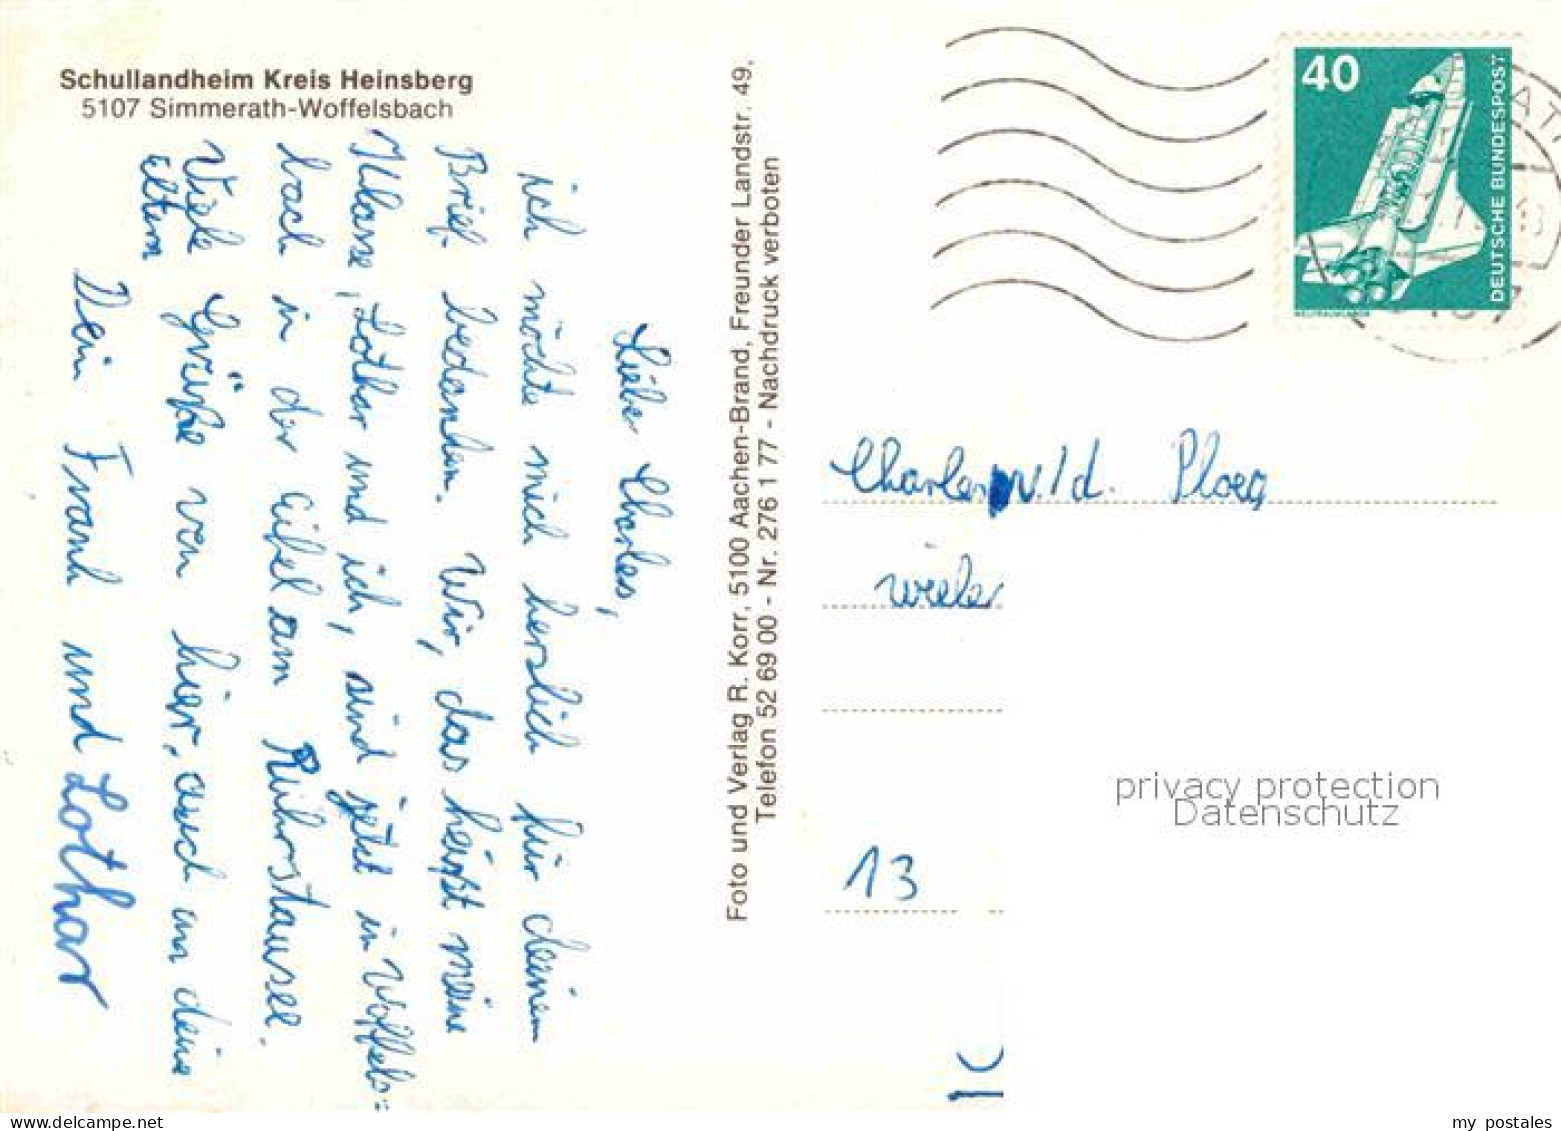 Schullandheim Kreis Heinsberg
5107 Simmerath-Woffelsbach
Liebe Charles,
ich möchte mich herslich für deinen
Brief bedanken. Wir, das heißt meine
Klasse, Lothar und ich, sind jetzt in Woffels=
bach in der Eifel am Ruhrstausee.
Viele Grüße von hier, auch an deine
Eltern
Dein Frank und Lothar
Foto und Verlag R. Korr, 5100 Aachen-Brand, Freunder Landstr. 49,
Telefon 52 69 00 - Nr. 276 1 77 - Nachdruck verboten
40
DEUTSCHE BUNDESPOST
WELTRAUMLABOR
Charles v./d. Ploeg
13
privacy protection
Datenschutz
my postales